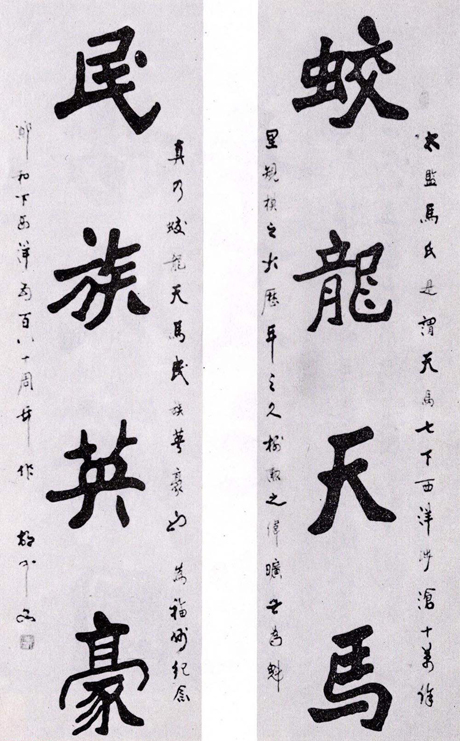 蛟龍天馬
太監馬氏是謂天馬七下西洋涉滄十萬餘
里規模之大歷年之久樹勳之偉曠世為魁
民族英豪
真乃蛟龍天馬民族英豪也為福州紀念
鄭和下西洋五百八十周年作